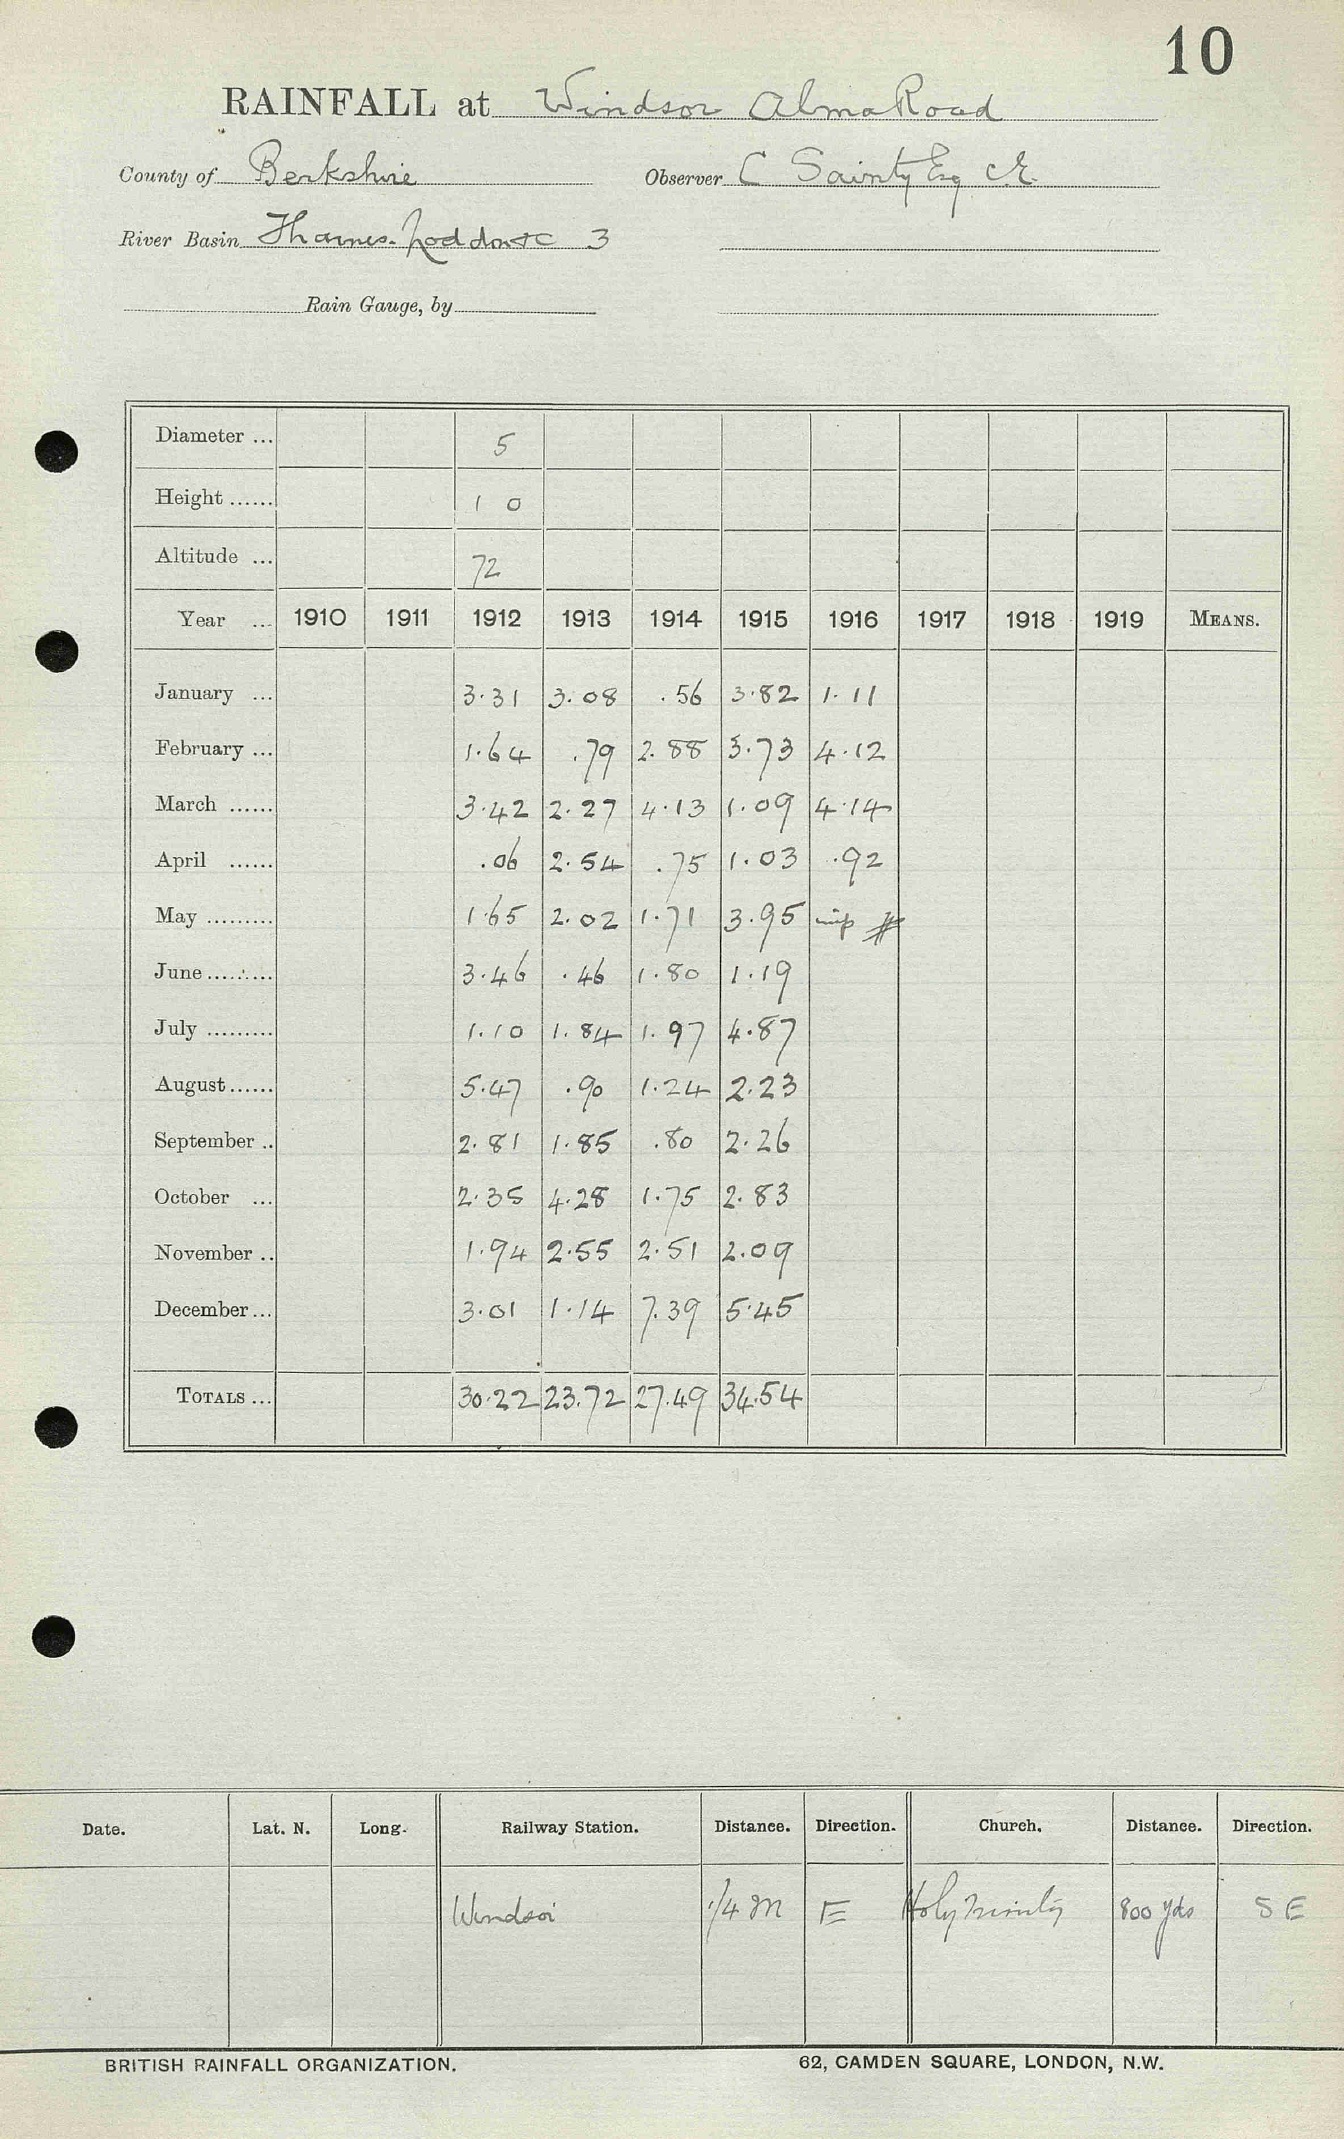 10
RAINFALL at Windsor Alma Road
County of Berkshire Observer C Sainty Esq C.E.
River Basin Thames-Loddon &c 3
Rain Gauge, by
Diameter ... 5
Height ...... 1 0
Altitude ... 72
Year ... 1910 1911 1912 1913 1914 1915 1916 1917 1918 1919 MEANS.
January ... 3.31 3.08 .56 3.82 1.11
February ... 1.64 .79 2.88 3.73 4.12
March ...... 3.42 2.27 4.13 1.09 4.14
April ...... .06 2.54 .75 1.03 .92
May ......... 1.65 2.02 1.71 3.95 #
June ......... 3.46 .46 1.80 1.19
July ......... 1.10 1.84 1.97 4.87
August ...... 5.47 .90 1.24 2.23
September .. 2.81 1.85 .80 2.26
October ... 2.35 4.28 1.75 2.83
November .. 1.94 2.55 2.51 2.09
December ... 3.01 1.14 7.39 5.45
TOTALS ... 30.22 23.72 27.49 34.54
Date. Lat. N. Long. Railway Station. Distance. Direction. Church. Distance. Direction.
Windsor 1/4 M E Holy Trinity 800 yds S E
BRITISH RAINFALL ORGANIZATION. 62, CAMDEN SQUARE, LONDON, N.W.